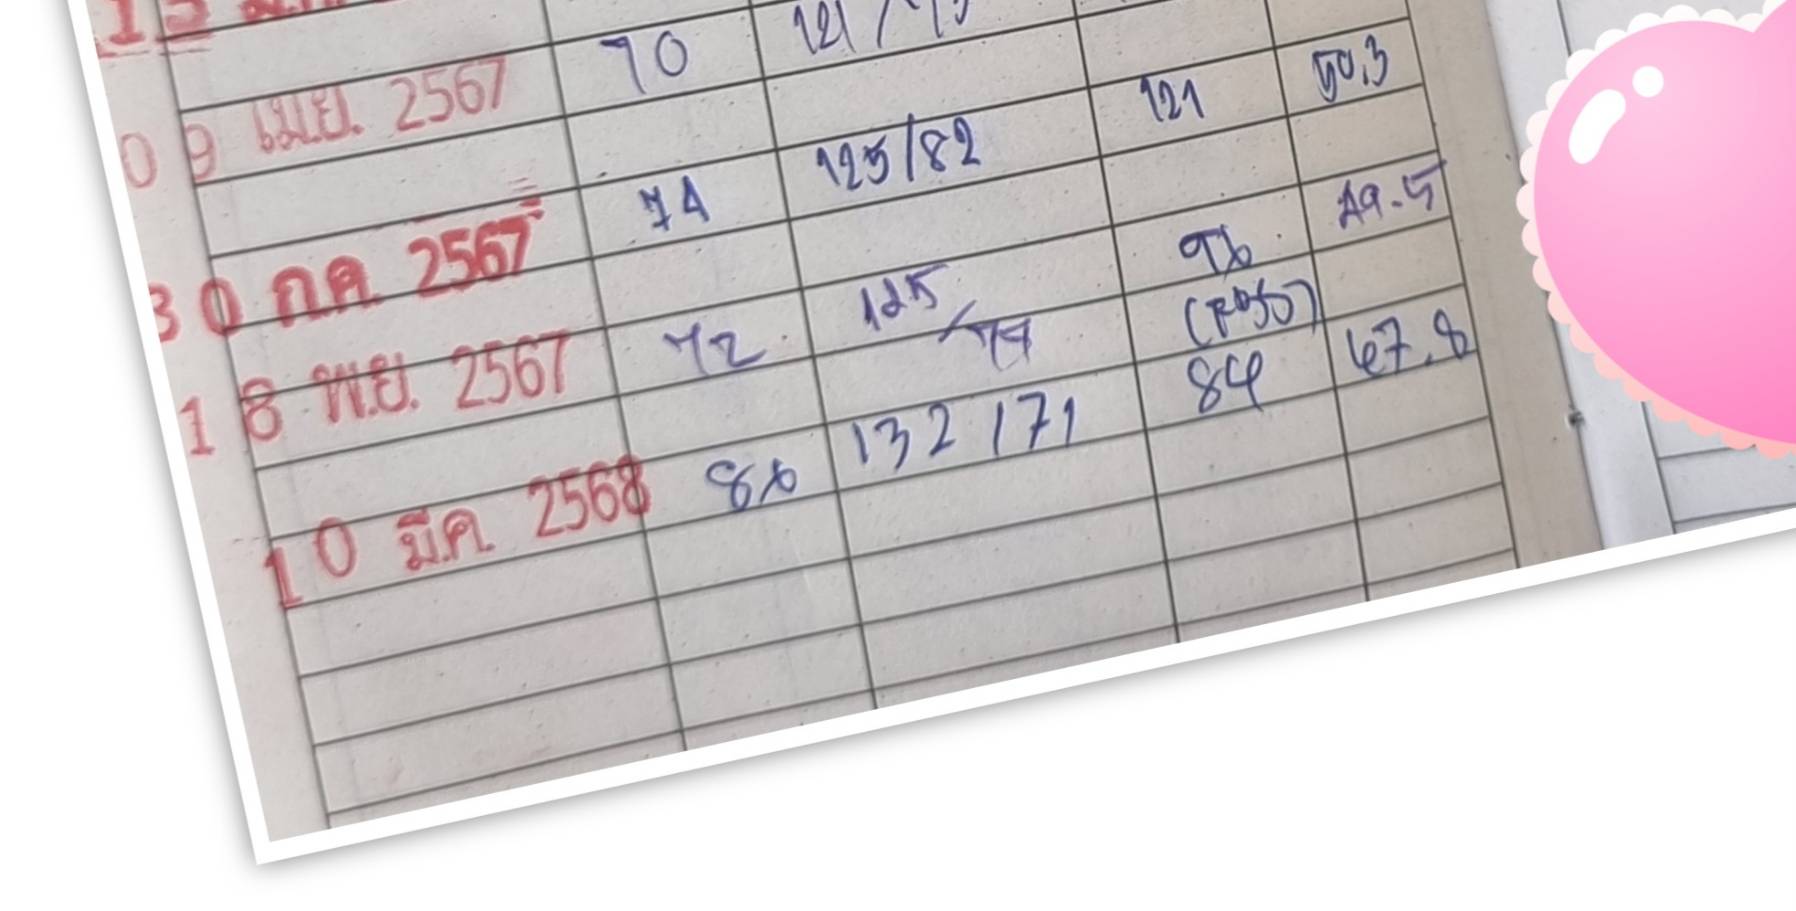 09 เม.ย. 2567 70
30 ก.ค. 2567 74 125/82 121 50.3
18 พ.ย. 2567 72 125/77 96 49.5
(FBS)
10 มี.ค. 2568 86 132/71 84 47.8